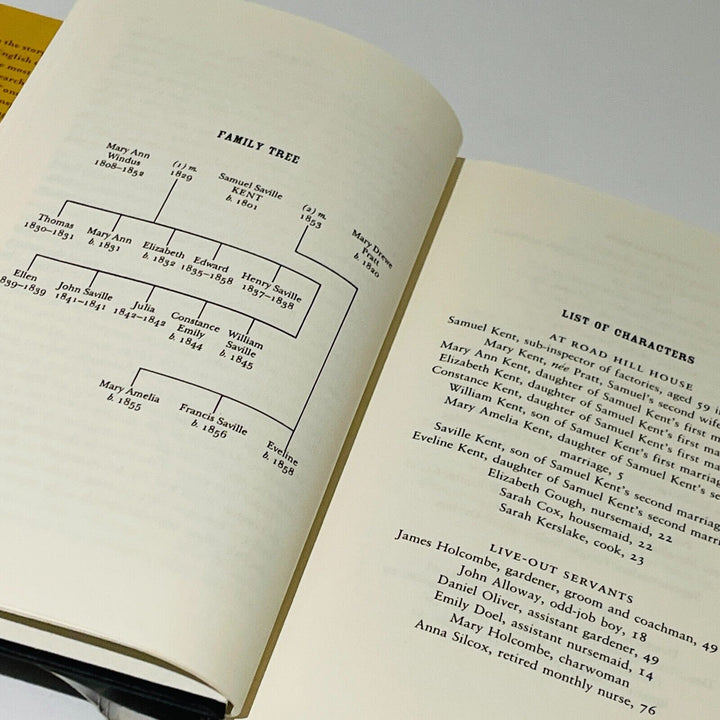 the stor
English
most
FAMILY TREE
Mary Ann
Windus
1808–1852
(1) m.
1829
Samuel Saville
KENT
b. 1801
(2) m.
1853
Mary Drewe
Pratt
b. 1820
Thomas
1830–1831
Mary Ann
b. 1831
Elizabeth
b. 1832
Edward
1835–1858
Henry Saville
1837–1838
Ellen
839–1839
John Saville
1841–1841
Julia
1842–1842
Constance
Emily
b. 1844
William
Saville
b. 1845
Mary Amelia
b. 1855
Francis Saville
b. 1856
Eveline
b. 1858
LIST OF CHARACTERS
AT ROAD HILL HOUSE
Samuel Kent, sub-inspector of factories, aged 59
Mary Kent, née Pratt, Samuel's second wife
Mary Ann Kent, daughter of Samuel Kent's first
Elizabeth Kent, daughter of Samuel Kent's first ma
Constance Kent, daughter of Samuel Kent's first ma
William Kent, son of Samuel Kent's first marriag
Mary Amelia Kent, daughter of Samuel Kent's se
marriage, 5
Saville Kent, son of Samuel Kent's second marriag
Eveline Kent, daughter of Samuel Kent's second marri
Elizabeth Gough, nursemaid, 22
Sarah Cox, housemaid, 22
Sarah Kerslake, cook, 23
LIVE-OUT SERVANTS
James Holcombe, gardener, groom and coachman, 49
John Alloway, odd-job boy, 18
Daniel Oliver, assistant gardener, 49
Emily Doel, assistant nursemaid, 14
Mary Holcombe, charwoman
Anna Silcox, retired monthly nurse, 76